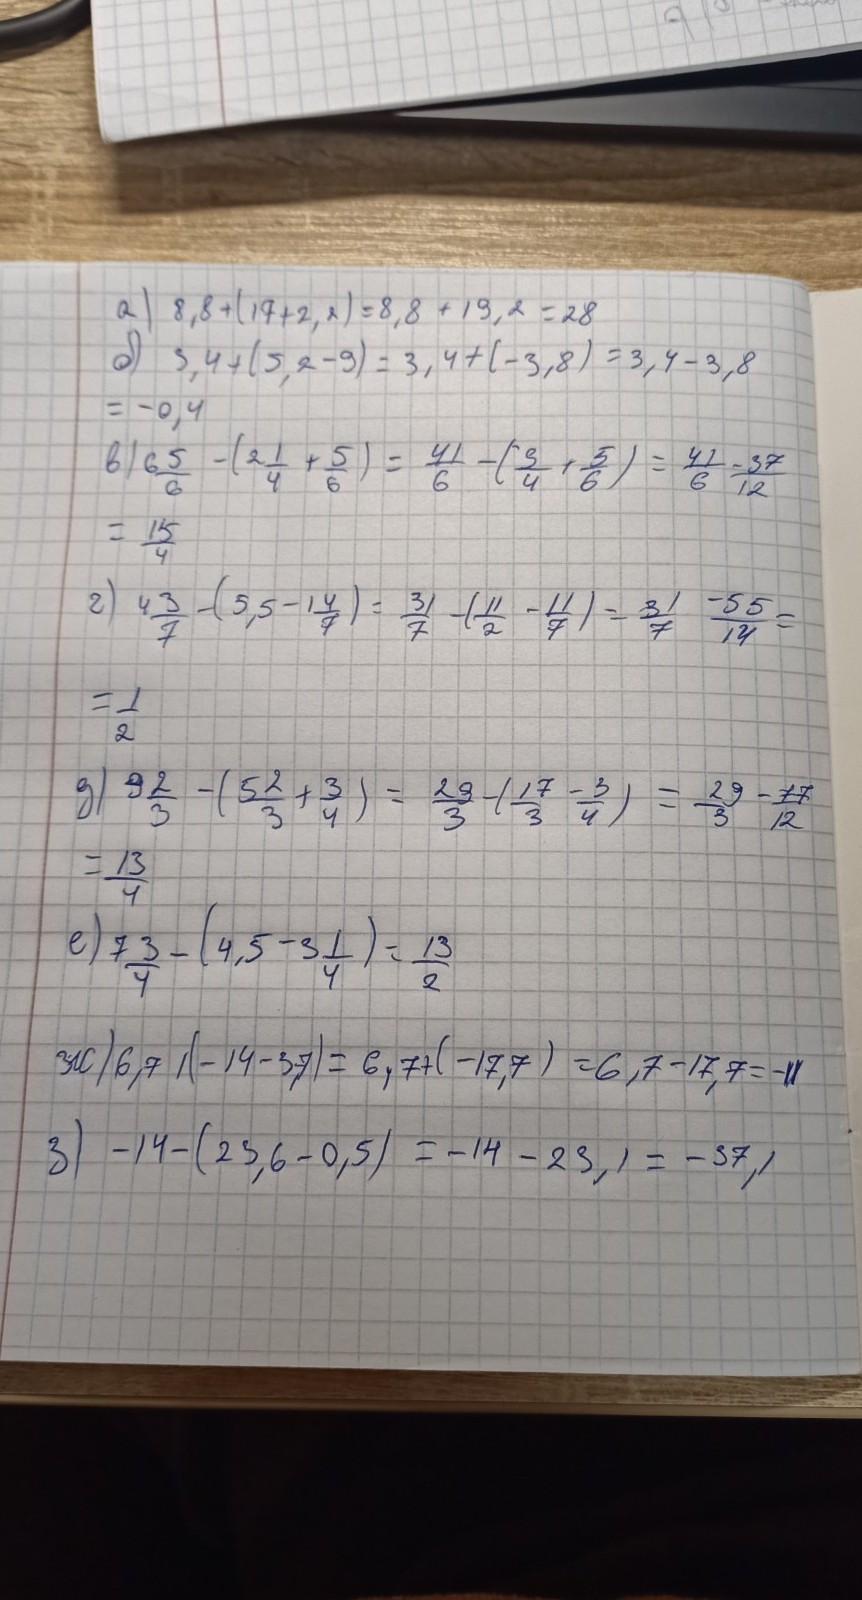 а) 8,8+(17+2,2)=8,8+19,2=28
б) 3,4+(5,2-9)=3,4+(-3,8)=3,4-3,8
=-0,4
в) 6 5/6 -(2 1/4 + 5/6) = 41/6 -(9/4 + 5/6) = 41/6 - 37/12
= 15/4
г) 4 3/7 -(5,5-1 4/7) = 31/7 -(11/2 - 11/7) = 31/7 - 55/14 =
= 1/2
д) 9 2/3 -(5 2/3 + 3/4) = 29/3 -(17/3 - 3/4) = 29/3 - 77/12
= 13/4
е) 7 3/4 -(4,5-3 1/4) = 13/2
ж) 6,7+(-14-3,7)=6,7+(-17,7)=6,7-17,7=-11
з) -14-(23,6-0,5)=-14-23,1=-37,1